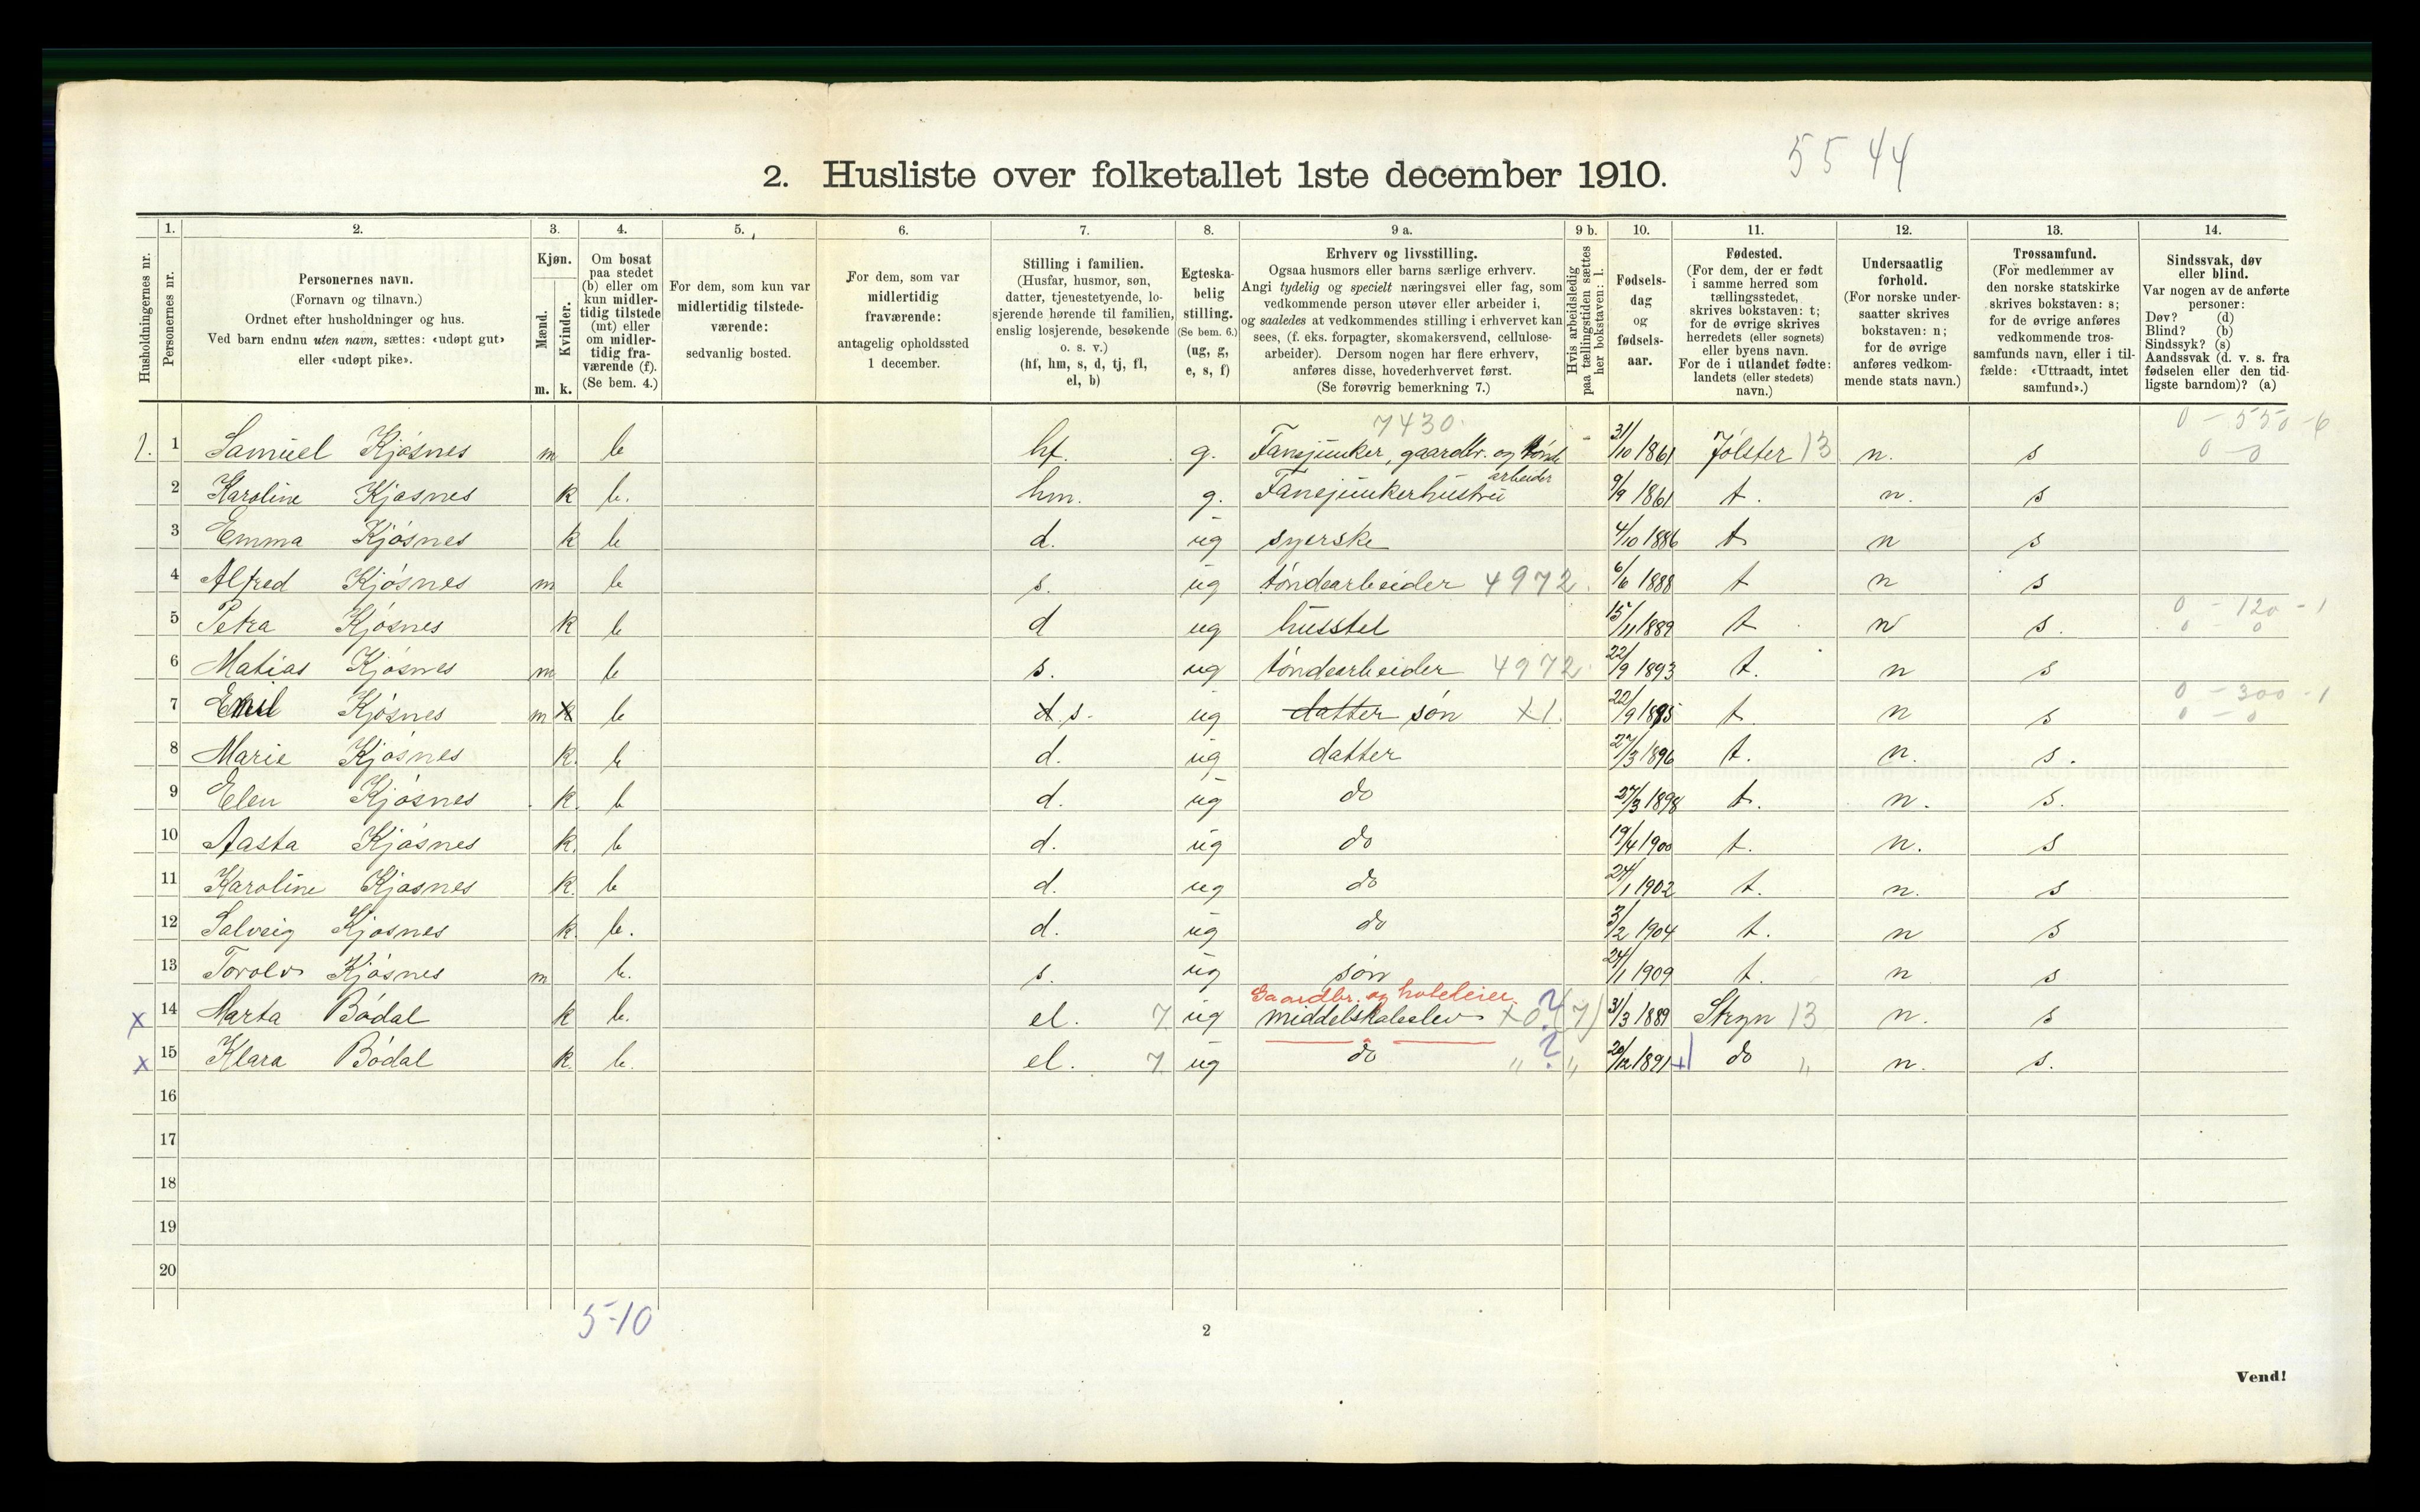 5544
2. Husliste over folketallet 1ste december 1910.
Husholdningernes nr.
1. Personernes nr.
2. Personernes navn.
(Fornavn og tilnavn.)
Ordnet efter husholdninger og hus.
Ved barn endnu uten navn, sættes: «udøpt gut»
eller «udøpt pike».
3. Kjøn.
Mænd. m.
Kvinder. k.
4. Om bosat
paa stedet
(b) eller om
kun midler-
tidig tilstede
(mt) eller
om midler-
tidig fra-
værende (f).
(Se bem. 4.)
5. For dem, som kun var
midlertidig tilstede-
værende:
sedvanlig bosted.
6. For dem, som var
midlertidig
fraværende:
antagelig opholdssted
1 december.
7. Stilling i familien.
(Husfar, husmor, søn,
datter, tjenestetyende, lo-
sjerende hørende til familien,
enslig losjerende, besøkende
o. s. v.)
(hf, hm, s, d, tj, fl,
el, b)
8. Egteska-
belig
stilling.
(Se bem. 6.)
(ug, g,
e, s, f)
9 a. Erhverv og livsstilling.
Ogsaa husmors eller barns særlige erhverv.
Angi tydelig og specielt næringsvei eller fag, som
vedkommende person utøver eller arbeider i,
og saaledes at vedkommendes stilling i erhvervet kan
sees, (f. eks. forpagter, skomakersvend, cellulose-
arbeider). Dersom nogen har flere erhverv,
anføres disse, hovederhvervet først.
(Se forøvrig bemerkning 7.)
9 b. Hvis arbeidsledig
paa tællingstiden sættes
her bokstaven: l.
10. Fødsels-
dag
og
fødsels-
aar.
11. Fødested.
(For dem, der er født
i samme herred som
tællingsstedet,
skrives bokstaven: t;
for de øvrige skrives
herredets (eller sognets)
eller byens navn.
For de i utlandet fødte:
landets (eller stedets)
navn.)
12. Undersaatlig
forhold.
(For norske under-
saatter skrives
bokstaven: n;
for de øvrige
anføres vedkom-
mende stats navn.)
13. Trossamfund.
(For medlemmer av
den norske statskirke
skrives bokstaven: s;
for de øvrige anføres
vedkommende tros-
samfunds navn, eller i til-
fælde: «Uttraadt, intet
samfund».)
14. Sindssvak, døv
eller blind.
Var nogen av de anførte
personer:
Døv? (d)
Blind? (b)
Sindssyk? (s)
Aandssvak (d. v. s. fra
fødselen eller den tid-
ligste barndom)? (a)
7430 0 - 550 - 6
1. 1 Samuel Kjøsnes m b hf. g. Fanejunker, gaardbr. og tønde 31/10 1861 Jølster 13 n. s 0 - 0
arbeider
2 Karoline Kjøsnes k b. hm. g. Fanejunkerhustru 9/9 1861 t. n. s
3 Emma Kjøsnes k b d. ug syerske 4/10 1886 t n s
4 Alfred Kjøsnes m b s. ug tøndearbeider 4972. 6/6 1888 t n s
0 - 120 - 1
5 Petra Kjøsnes k b d ug husstel 15/11 1889 t n s. 0 - 0
6 Matias Kjøsnes m b s. ug tøndearbeider 4972. 22/9 1893 t. n s
0 - 300 - 1
7 Emil Kjøsnes m k b d. s. ug datter søn X1. 22/9 1895 t. n s 0 - 0
8 Marie Kjøsnes k. b d. ug datter 27/3 1896 t. n. s.
9 Elen Kjøsnes k. b d. ug do 27/3 1898 t. n. s.
10 Aasta Kjøsnes k. b d. ug do 19/4 1900 t. n. s
11 Karoline Kjøsnes k. b d. ug do 24/1 1902 t. n. s
12 Solveig Kjøsnes k. b. d. ug do 3/2 1904 t. n s
13 Torolv Kjøsnes m b. s. ug søn 24/1 1909 t. n s
Gaardbr. og hoteleier.
x 14 Marta Bødal k b. el. 7 ug middelskoleelev X0 ? (7) 31/3 1889 Stryn 13 n. s
x 15 Klara Bødal k. b. el. 7 ug do " ? " 20/12 1891 +1 do " n. s.
16
17
18
19
20
5-10
2
Vend!